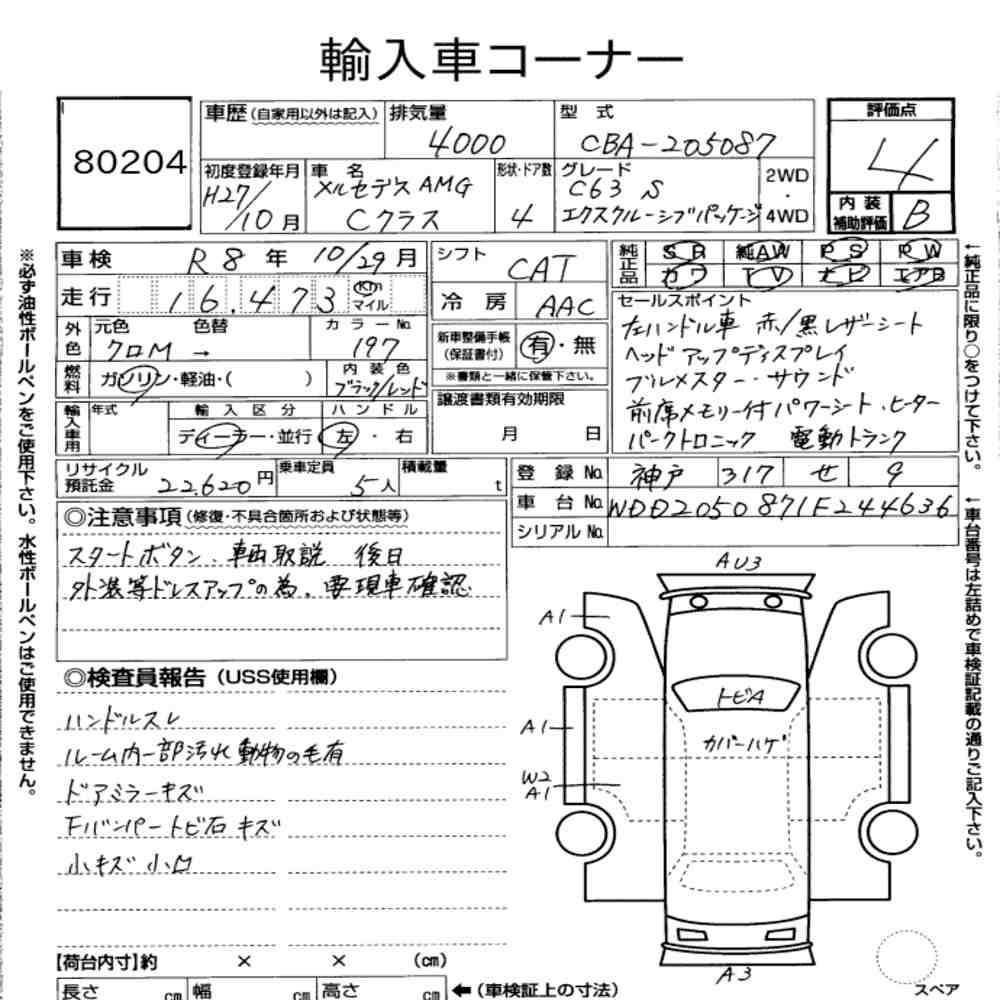 輸入車コーナー
80204
車歴(自家用以外は記入)
排気量
4000
型 式
CBA-205087
評価点
4
初度登録年月
H27/
/10月
車 名
メルセデス AMG
Cクラス
形状・ドア数
4
グレード
C63 S
エクスクルーシブパッケージ
2WD
・
4WD
内 装
補助評価
B
車検
R8年 10/29月
走行
16.473
Km
マイル
外色
元色
色替
カラーNo.
クロM →
197
燃料
ガソリン・軽油・( )
内 装 色
ブラック/レッド
輸入車用
年式
輸 入 区 分
ハ ン ド ル
ディーラー・並行
左・右
リサイクル
預託金
22.620円
乗車定員
5人
積載量
t
シフト
CAT
冷 房
AAC
新車整備手帳
(保証書付)
有・無
※書類と一緒に保管下さい。
譲渡書類有効期限
月 日
純正品
SR 純AW PS PW
カワ TV ナビ エアB
セールスポイント
左ハンドル車 赤/黒レザーシート
ヘッドアップディスプレイ
ブルメスター・サウンド
前席メモリー付パワーシート、ヒーター
パークトロニック 電動トランク
登 録 No.
神戸 317 せ 9
車 台 No.
WDD2050871F244636
シリアル No.
◎注意事項(修復・不具合箇所および状態等)
スタートボタン、車両取説 後日
外装等ドレスアップの為、要現車確認
◎検査員報告(USS使用欄)
ハンドルスレ
ルーム内一部汚れ 動物の毛有
ドアミラーキズ
Fバンパートビ石キズ
小キズ小凹
AU3
A1
A1
W2
A1
トビA
カバーハゲ
A3
スペア
【荷台内寸】約 × × (cm)
長さ cm 幅 cm 高さ cm ←(車検証上の寸法)
※必ず油性ボールペンをご使用下さい。水性ボールペンはご使用できません。
←純正品に限り○をつけて下さい。
←車台番号は左詰めで車検証記載の通りご記入下さい。